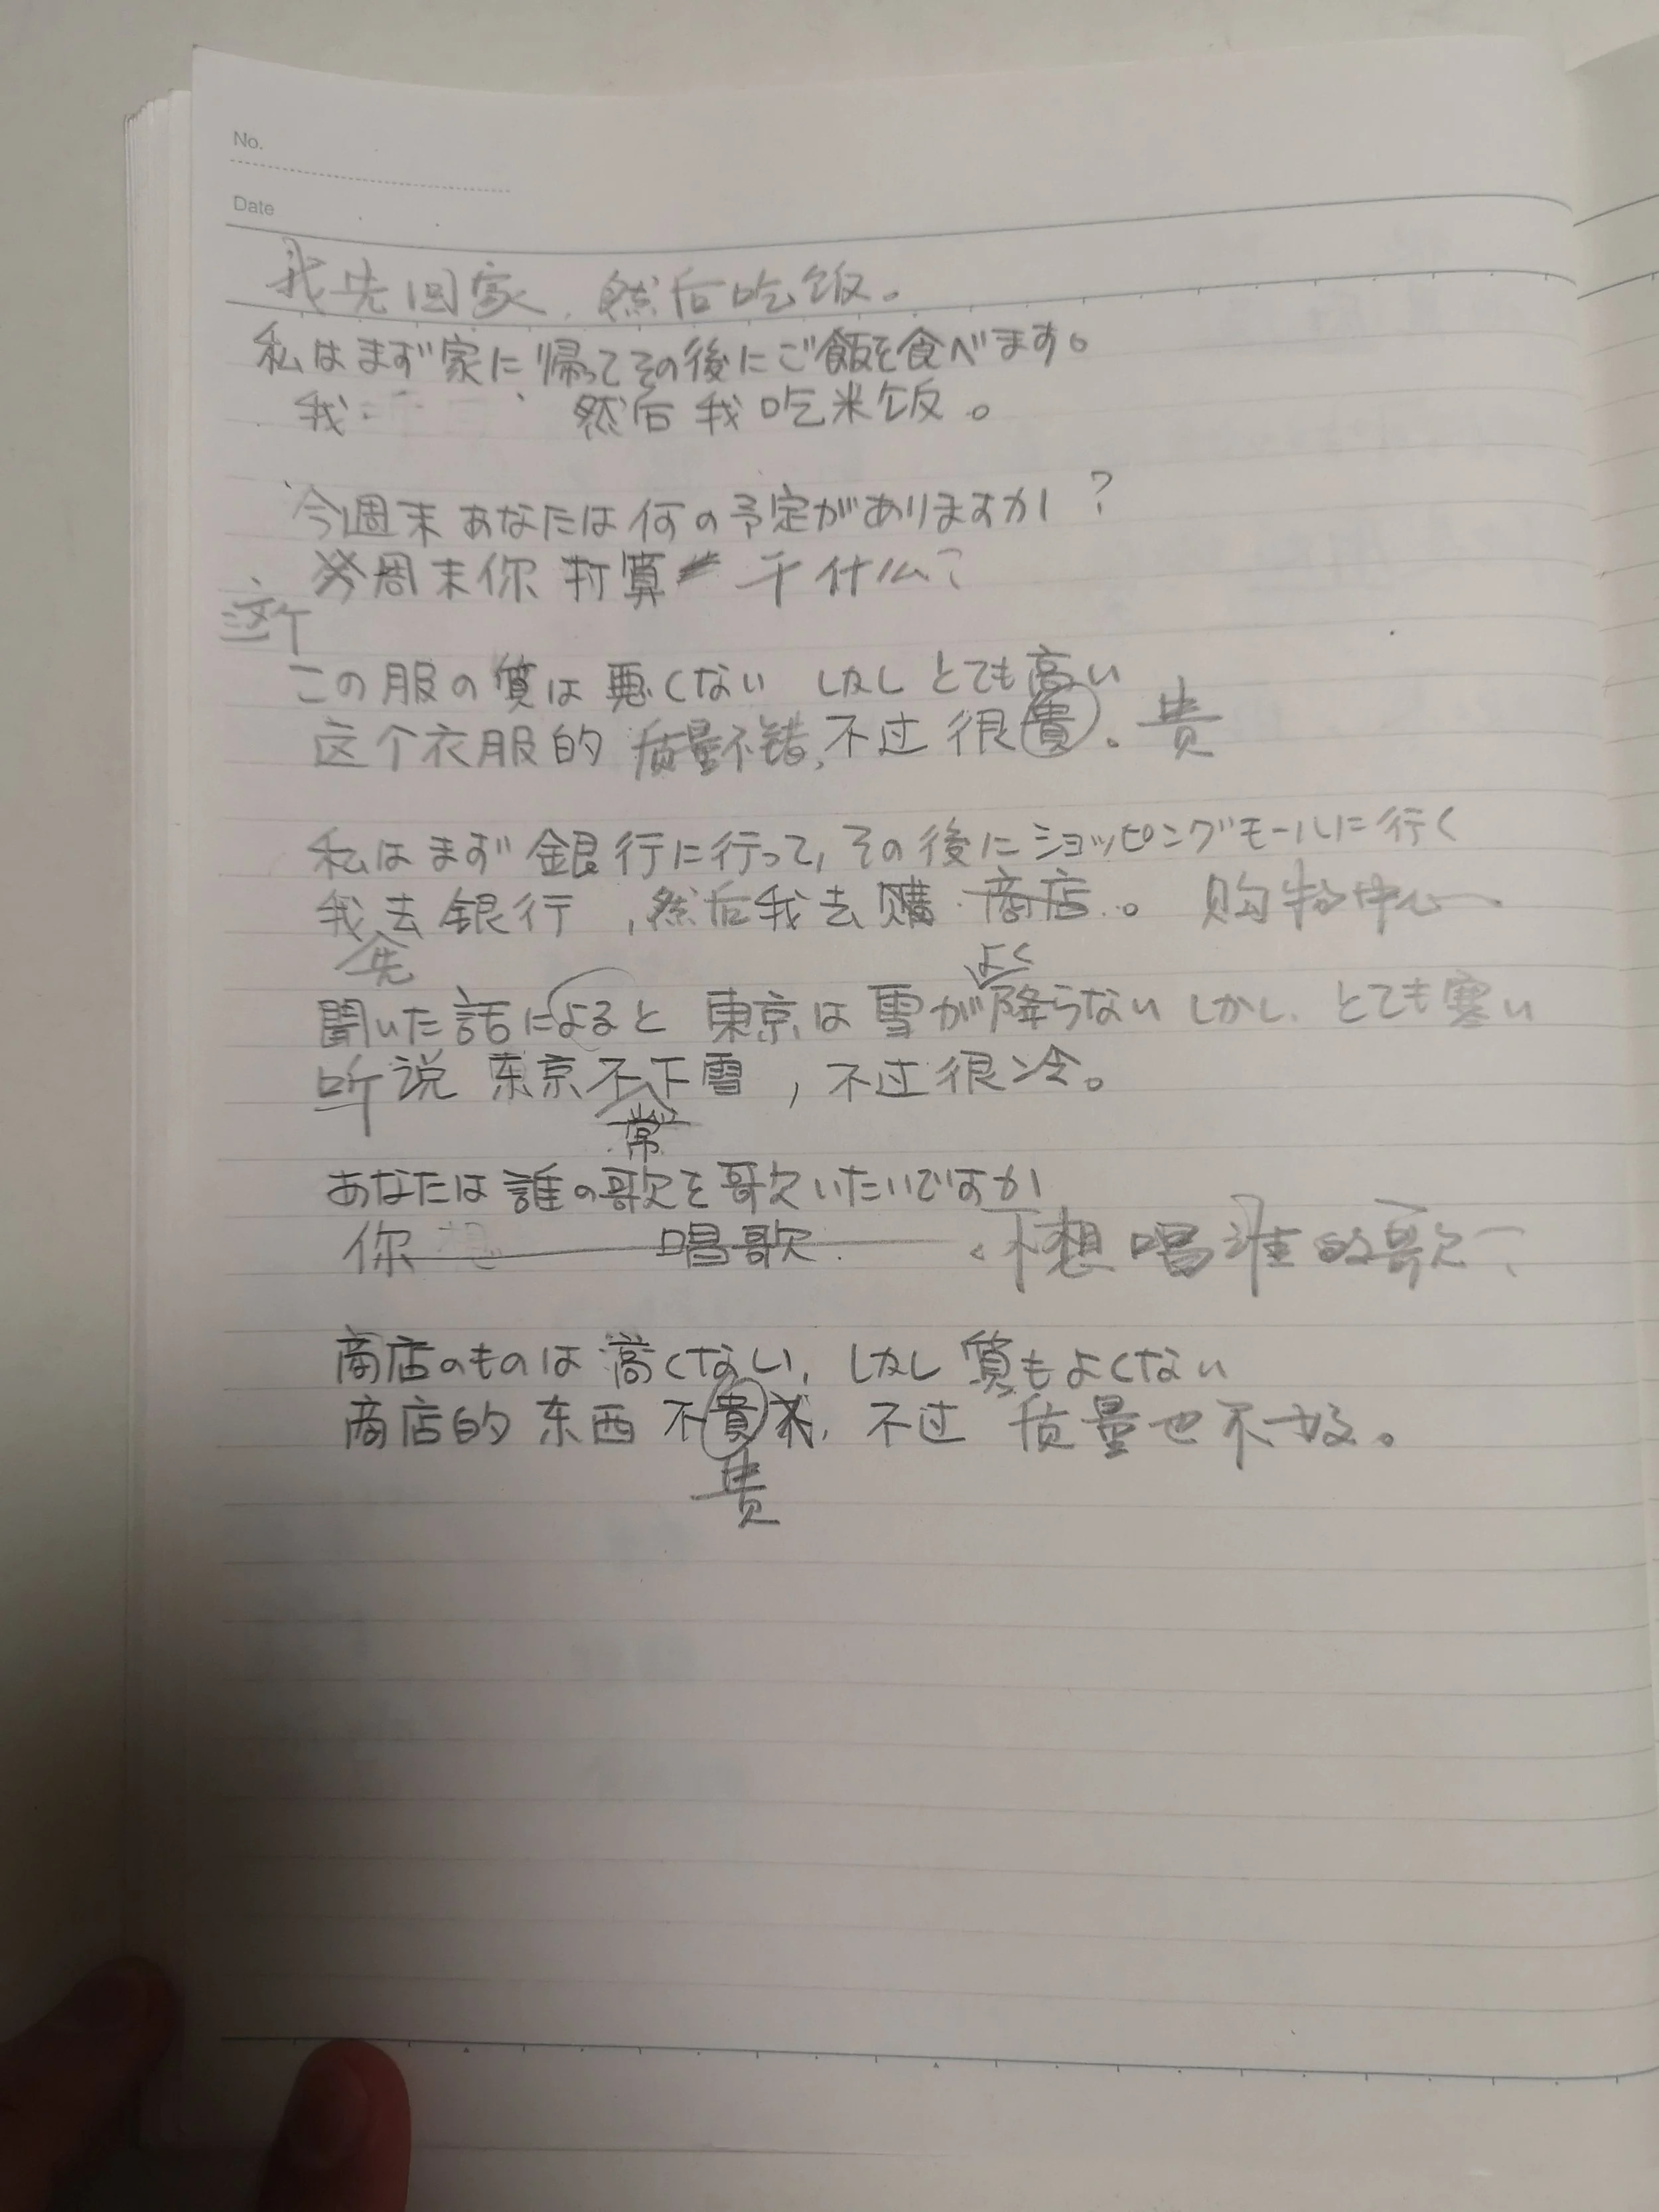 No.
Date
我先回家,然后吃饭。
私はまず家に帰ってその後にご飯を食べます。
我 然后我吃米饭。
今週末あなたは何の予定がありますか?
周末你打算干什么?
这个
この服の質は悪くない しかしとても高い
这个衣服的质量不错,不过很貴。贵
私はまず銀行に行って,その後にショッピングモールに行く
我去銀行,然后我去購商店。购物中心
先
よく
聞いた話によると東京は雪が降らないしかし、とても寒い
听说 东京不下雪,不过很冷。
常
あなたは誰の歌を歌いたいですか
你 唱歌 想唱谁的歌?
商店のものは高くない,しかし質もよくない
商店的东西不貴,不过质量也不好。
贵